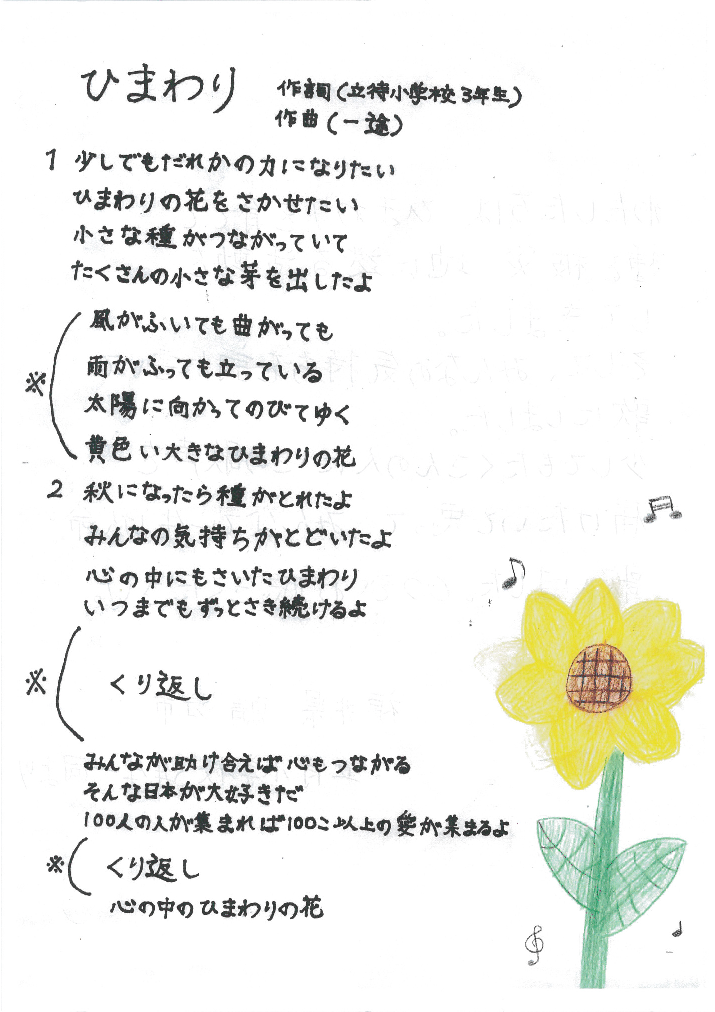 ひまわり
作詞(立待小学校3年生)
作曲(一途)
1 少しでもだれかの力になりたい
ひまわりの花をさかせたい
小さな種がつながっていて
たくさんの小さな芽を出したよ
風がふいても曲がっても
雨がふっても立っている
※
太陽に向かってのびてゆく
黄色い大きなひまわりの花
2 秋になったら種がとれたよ
みんなの気持ちがとどいたよ
心の中にもさいたひまわり
いつまでもずっとさき続けるよ
※ くり返し
みんなが助け合えば心もつながる
そんな日本が大好きだ
100人の人が集まれば100こ以上の愛が集まるよ
※ くり返し
心の中のひまわりの花